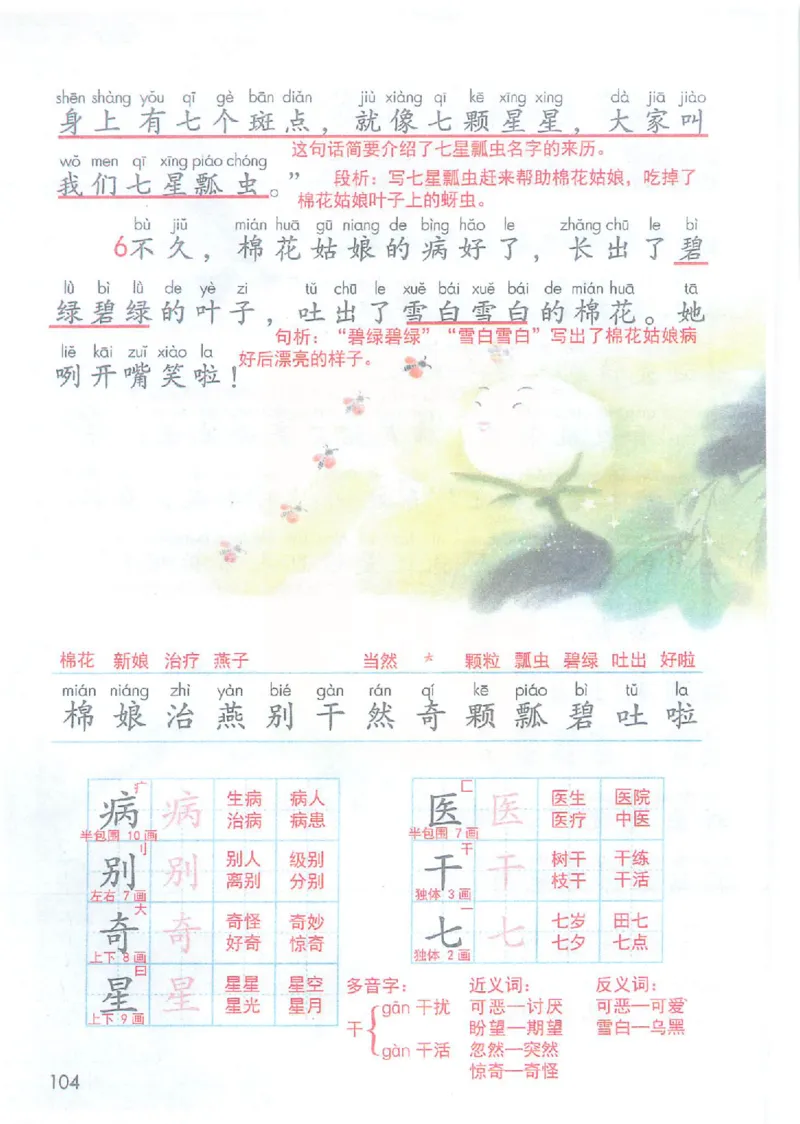 shēn shàng yǒu qī gè bān diǎn jiù xiàng qī kē xīng xing dà jiā jiào
身上有七个斑点，就像七颗星星，大家叫
这句话简要介绍了七星瓢虫名字的来历。
wǒ men qī xīng piáo chóng
我们七星瓢虫。”
段析：写七星瓢虫赶来帮助棉花姑娘，吃掉了
棉花姑娘叶子上的蚜虫。
bù jiǔ mián huā gū niang de bìng hǎo le zhǎng chū le bì
6不久，棉花姑娘的病好了，长出了碧
lǜ bì lǜ de yè zi tǔ chū le xuě bái xuě bái de mián huā tā
绿碧绿的叶子，吐出了雪白雪白的棉花。她
句析：“碧绿碧绿”“雪白雪白”写出了棉花姑娘病
好后漂亮的样子。
liě kāi zuǐ xiào la
咧开嘴笑啦！
棉花 新娘 治疗 燕子 当然 * 颗粒 瓢虫 碧绿 吐出 好啦
mián niáng zhì yàn bié gàn rán qí kē piáo bì tǔ la
棉 娘 治 燕 别 干 然 奇 颗 瓢 碧 吐 啦
疒
病 病 生病 病人
治病 病患
半包围 10画
刂
别 别 别人 级别
离别 分别
左右 7画
大
奇 奇 奇怪 奇妙
好奇 惊奇
上下 8画
日
星 星 星星 星空
星光 星月
上下 9画
匚
医 医 医生 医院
医疗 中医
半包围 7画
干
干 干 树干 干练
枝干 干活
独体 3画
一
七 七 七岁 田七
七夕 七点
独体 2画
多音字：
干
gān 干扰
gàn 干活
近义词：
可恶—讨厌
盼望—期望
忽然—突然
惊奇—奇怪
反义词：
可恶—可爱
雪白—乌黑
104